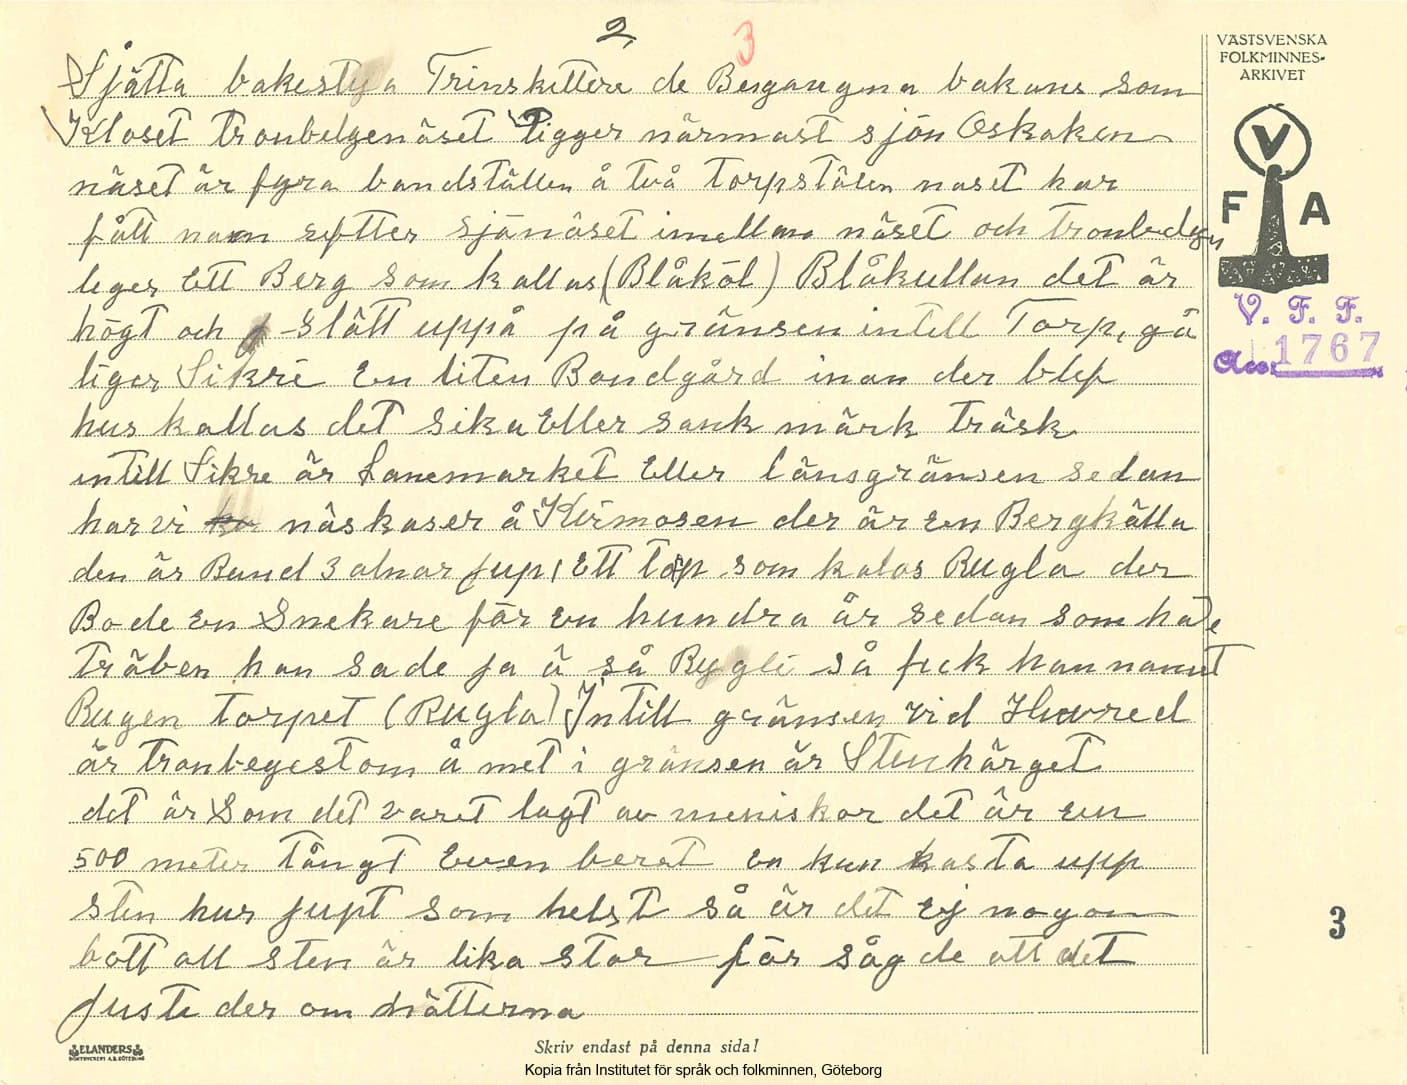 2, 3
VÄSTSVENSKA
FOLKMINNES-
ARKIVET
V
F A
V. F. F.
1767
Sjätta bakestya Trinskettere de Bergaregna bakans som
Kloset Tronbelgenäset ligger närmast sjön Oskaken
näset är fyra bandställen å två torpställen naset har
fått namn eftter sjänäset imellan näset och tronbelgen
leger Ett Berg som kallas (Blåköl) Blåkullan det är
högt och slätt uppå på gränsen intill Torp, gå
liger Sikre En liten Bondgård inan der blef
hus kallas det sika Eller sank märk träsk
intill Sikre är Lanemarket Eller länsgränsen sedan
har vi näskaser å Kirmosen der är en Bergkälla
den är Rund 3 alnar jup, Ett torp som kalas Rugla der
Bode en Snekare för en hundra år sedan som hade
träben han sade ja ä så Rygli så fick han namnet
Rugen torpet (Rugla) Intill gränsen vid Hwred
är tronbegestom å met i gränsen är Stenhärget
det är som det varet lagt av meniskor det är en
500 meter långt Even beret en kan kasta upp
sten hur jupt som helst så är det Ej nogon
bott all sten är lika stor för såg de att det
juste der om nätterna
3
ELANDERS
BOKTRYCKERI A.B. GÖTEBORG
Skriv endast på denna sida!
Kopia från Institutet för språk och folkminnen, Göteborg